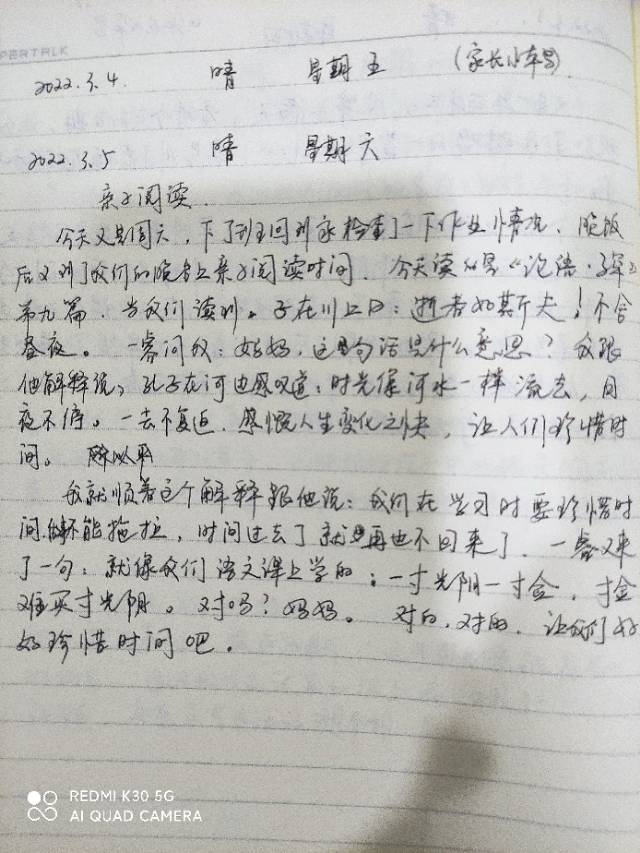 PERTALK
2022.3.4. 晴 星期五 (家长小本号)
2022.3.5 晴 星期六
亲子阅读.
今天又是周六，下了班回到家检查了一下作业情况、晚饭
后又到了我们的晚上亲子阅读时间. 今天读的是《论语·子罕》
第九篇. 当我们读到。子在川上曰：逝者如斯夫！不舍
昼夜。一睿问我：妈妈，这句话是什么意思？我跟
他解释说，孔子在河边感叹道：时光像河水一样流去，日
夜不停。一去不复返. 感慨人生变化之快，让人们珍惜时
间。
我就顺着这个解释跟他说：我们在学习时要珍惜时
间.不能拖拉，时间过去了就再也不回来了. 一睿又来
了一句：就像我们语文课上学的：一寸光阴一寸金，寸金
难买寸光阴。对吗？妈妈。对的.对的. 让我们好
好珍惜时间吧。
REDMI K30 5G
AI QUAD CAMERA